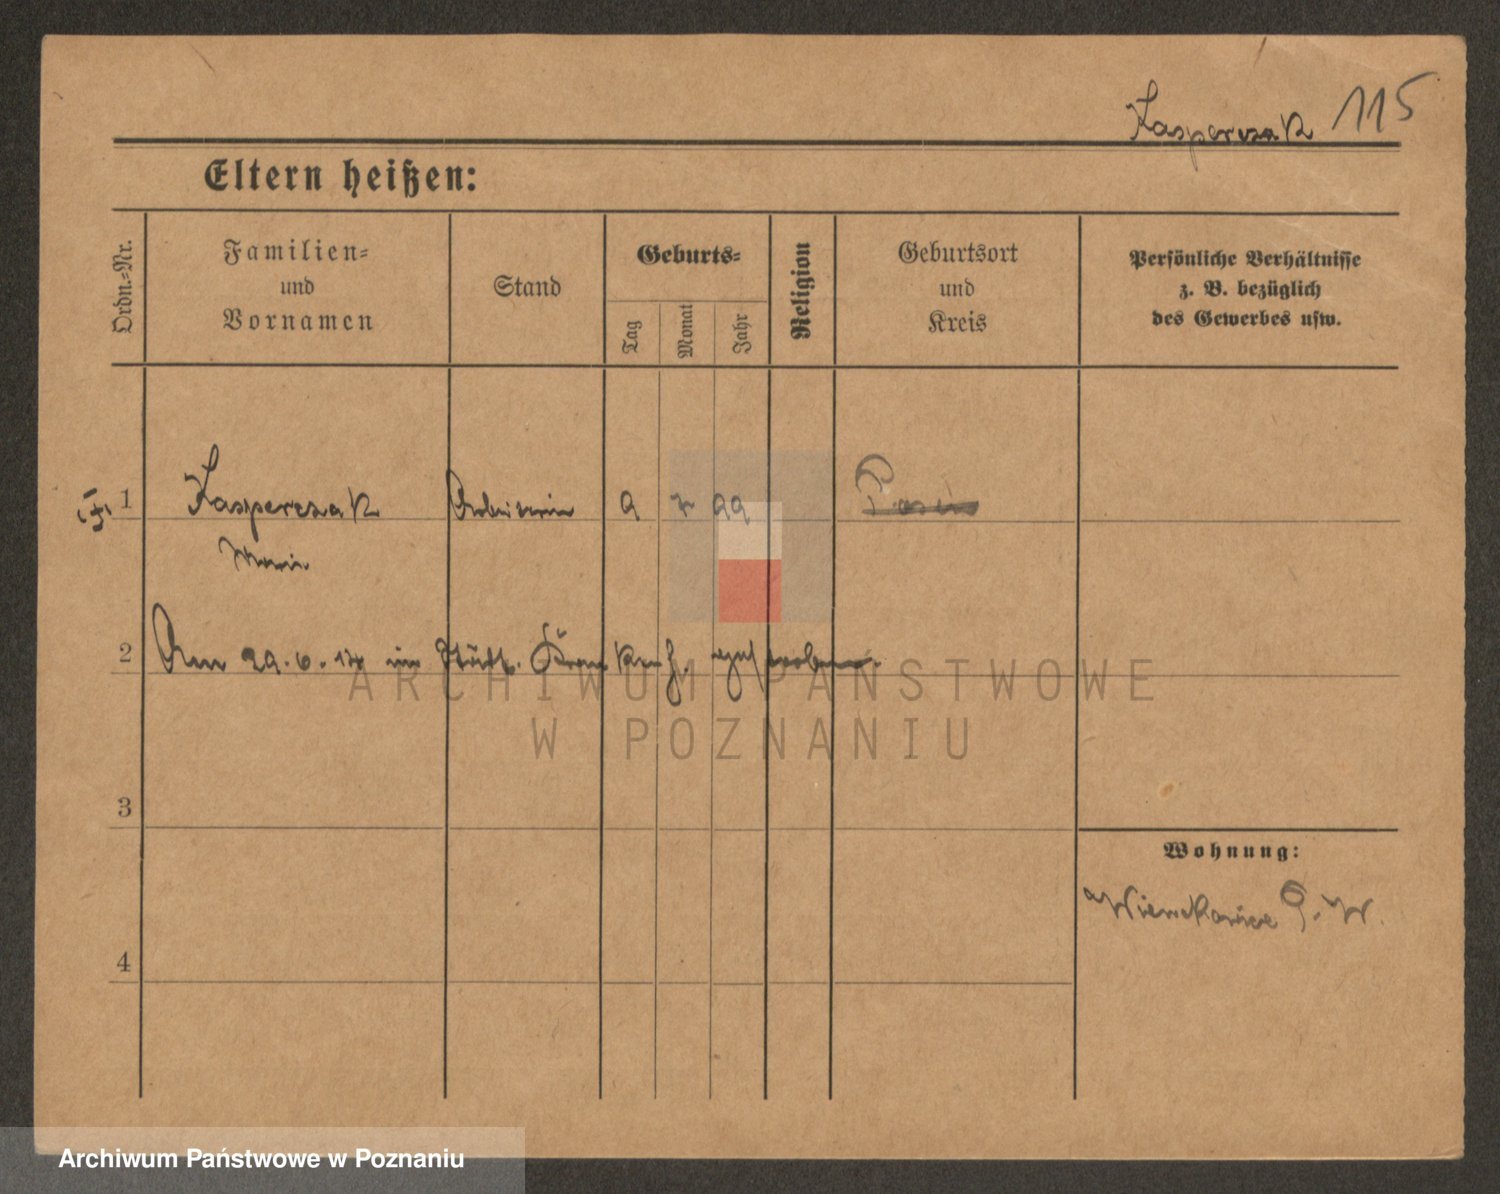 Kasperczak 115
Eltern heißen:
Ordn.-Nr.
Familien-
und
Vornamen
Stand
Geburts-
Tag
Monat
Jahr
Religion
Geburtsort
und
Kreis
Persönliche Verhältnisse
z. B. bezüglich
des Gewerbes usw.
1 Kasperczak Arbeiterin 9 99 Posen
Marie
2 Am 29.6.14 im Städt. Krankenh. verstorben.
ARCHIWUM PAŃSTWOWE
W POZNANIU
3
Wohnung:
4
Archiwum Państwowe w Poznaniu